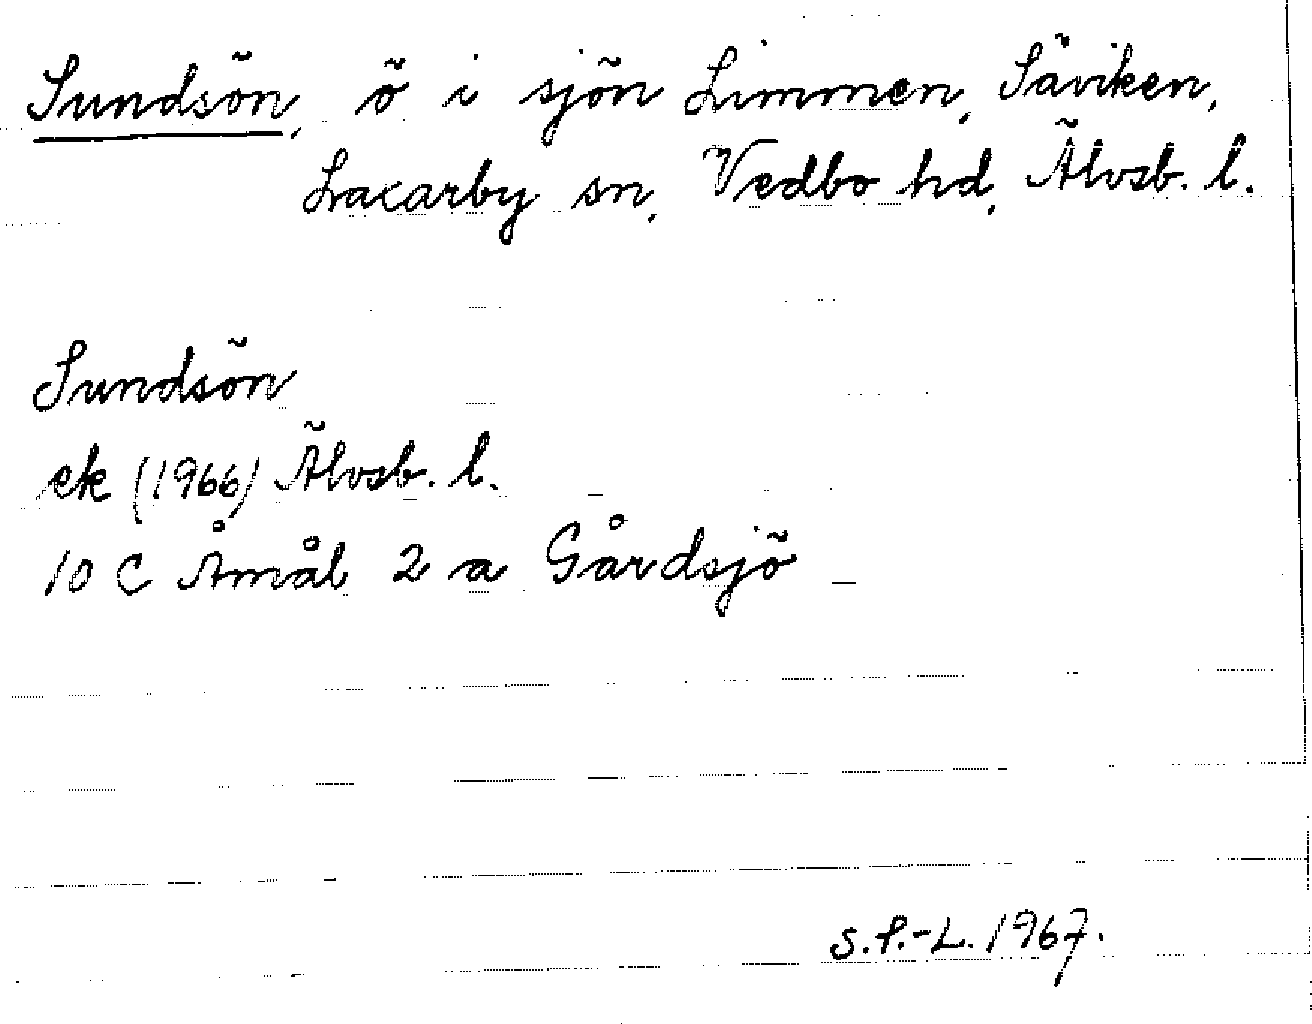 Sundsön, ö i sjön Limmen, Säviken,
Lacarby sn, Vedbo hd, Älvsb. l.
Sundsön
ek (1966) Älvsb. l.
10 C Åmål 2 a Gårdsjö
S.P.-L. 1967.